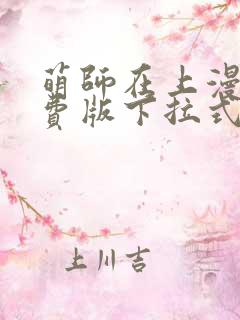 萌師在上漫
費版下拉式
上川吉